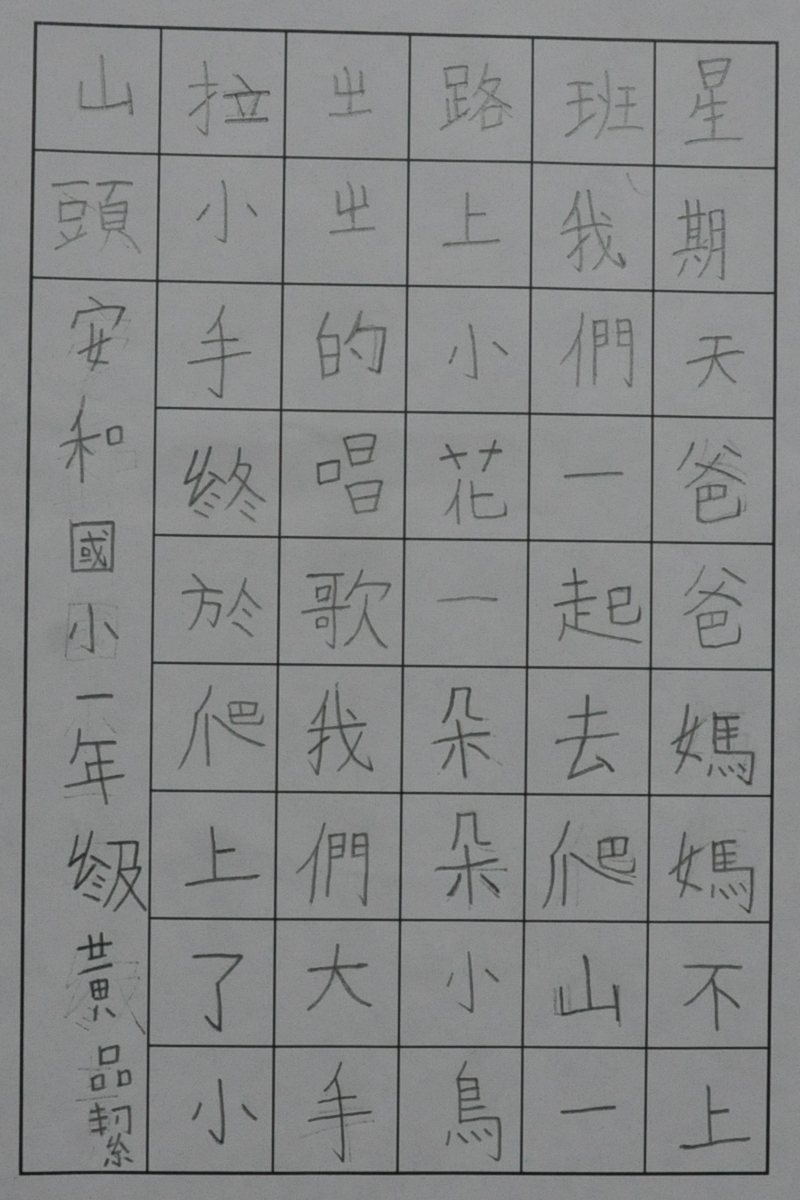 星期天爸爸媽媽不上
班我們一起去爬山一
路上小花一朵朵小鳥
ㄓㄓ的唱歌我們大手
拉小手終於爬上了小
山頭
安和國小一年級黃品絜